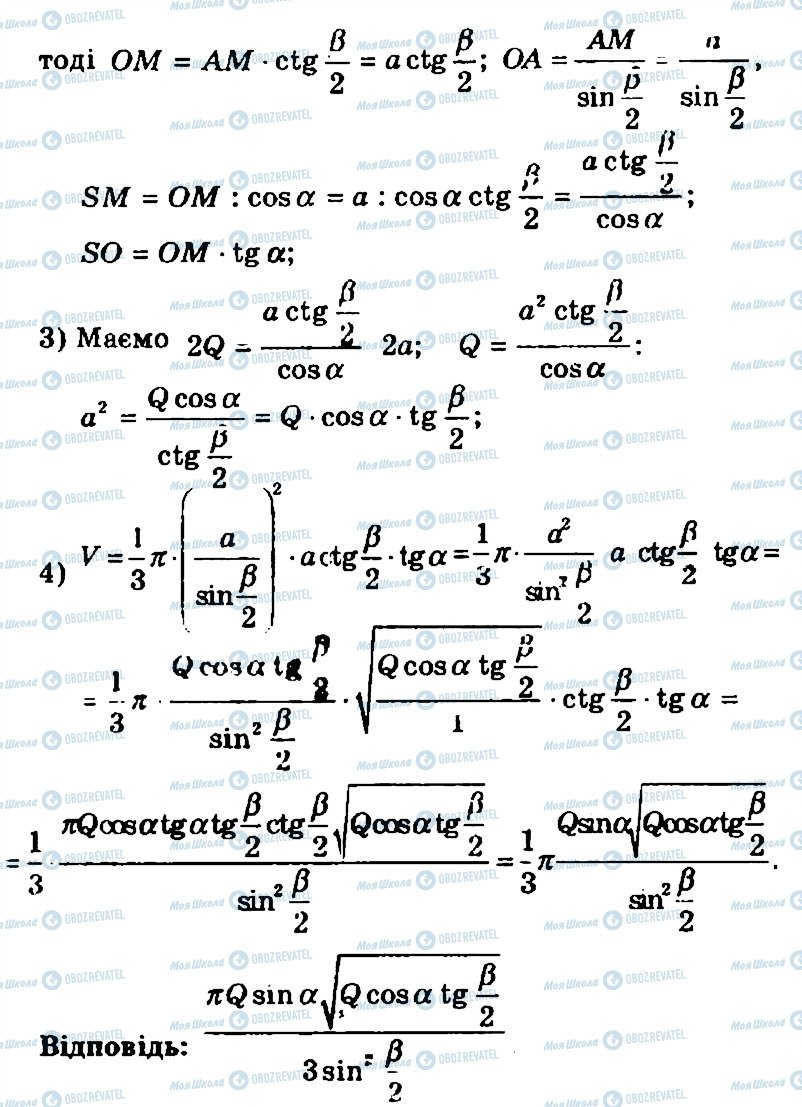 тоді OM = AM · ctg β/2 = a ctg β/2; OA = AM / sin β/2 = a / sin β/2,
SM = OM : cos α = a : cos α ctg β/2 = a ctg β/2 / cos α;
SO = OM · tg α;
3) Маємо 2Q = a ctg β/2 / cos α 2a; Q = a² ctg β/2 / cos α :
a² = Q cos α / ctg β/2 = Q · cos α · tg β/2;
4) V = 1/3 π · (a / sin β/2)² · a ctg β/2 · tg α = 1/3 π · a² / sin² β/2 a ctg β/2 tg α =
= 1/3 π · Q cos α tg β/2 / sin² β/2 · √(Q cos α tg β/2 / 1) · ctg β/2 · tg α =
= 1/3 πQ cos α tg α tg β/2 ctg β/2 √(Q cos α tg β/2) / sin² β/2 = 1/3 π Q sin α √(Q cos α tg β/2) / sin² β/2.
Відповідь: πQ sin α √(Q cos α tg β/2) / 3 sin² β/2